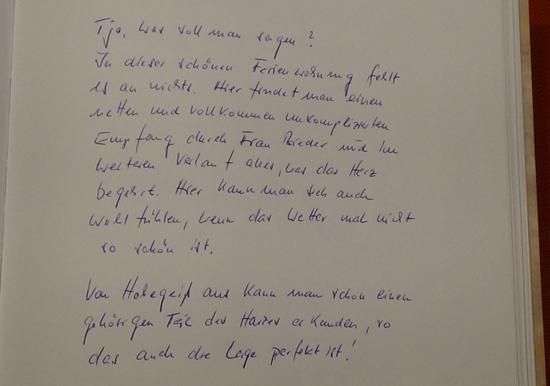 Tja, was soll man sagen?
In dieser schönen Ferienwohnung fehlt
es an nichts. Hier findet man einen
netten und vollkommen unkomplizierten
Empfang durch Frau Rieder und im
weiteren Verlauf alles, was das Herz
begehrt. Hier kann man sich auch
wohl fühlen, wenn das Wetter mal nicht
so schön ist.
Von Hohegeiß aus kann man schon einen
gehörigen Teil des Harzes erkunden, so
das auch die Lage perfekt ist!